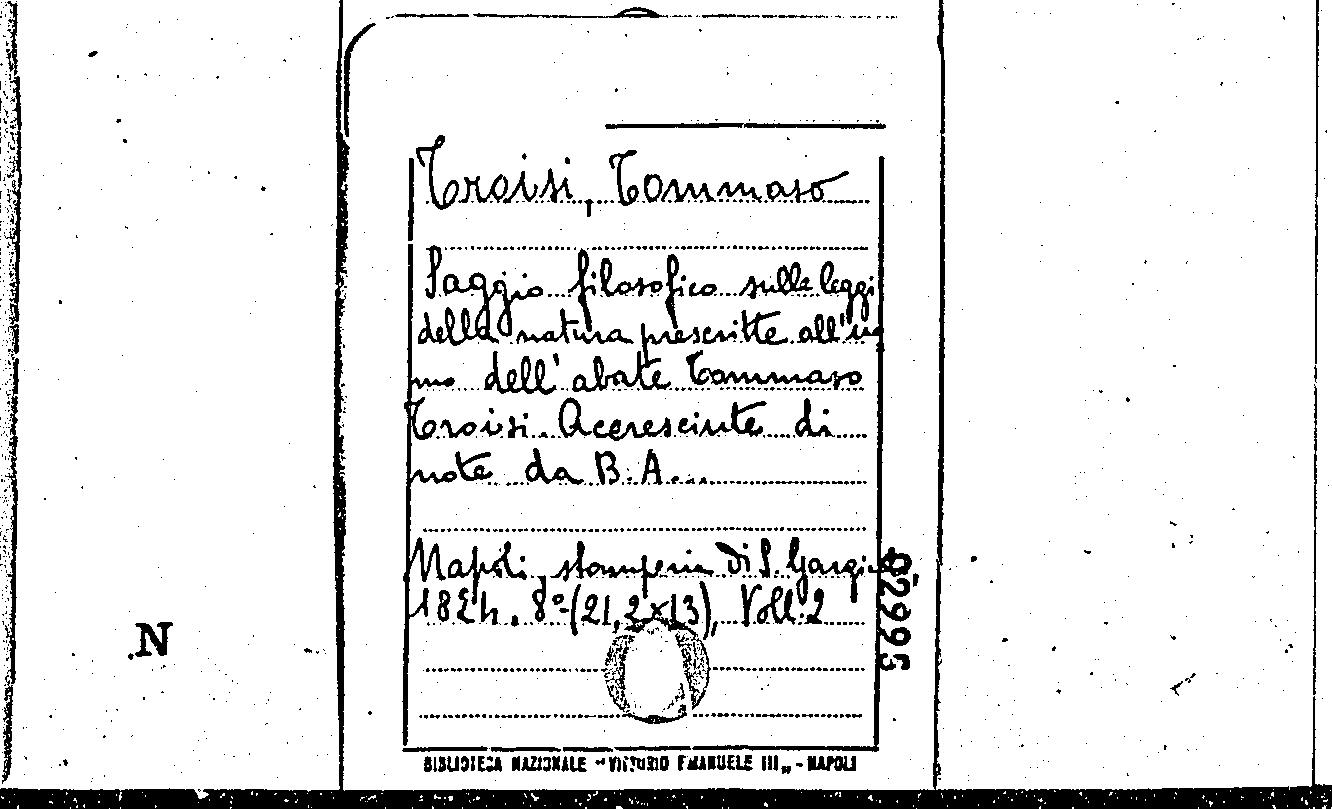 Troisi, Tommaso
Saggio filosofico sulle leggi
della natura prescritte all'uo
mo dell'abate Tommaso
Troisi. Accresciute di
note da B. A...
Napoli, stamperia di S. Gargiulo
1824. 8°-(21,2x13), Voll. 2
N
BIBLIOTECA NAZIONALE "VITTORIO EMANUELE III" - NAPOLI